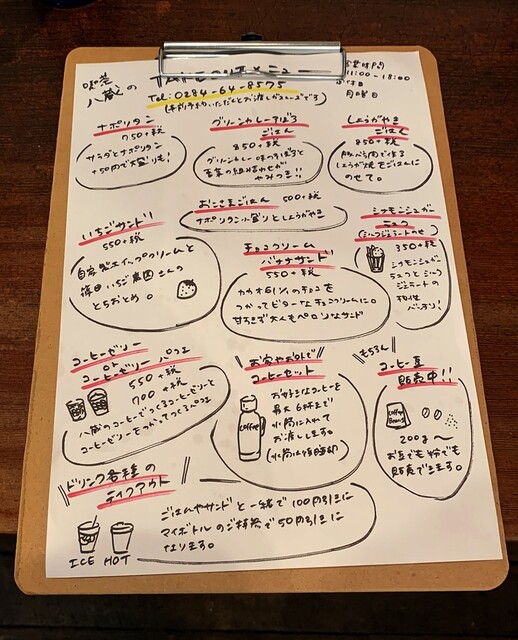 喫茶
八蔵の
メニュー
Tel: 0284-64-8575
(事前予約いただくとお渡しがスムーズです)
営業時間
11:00-18:00
定休日
月曜日
ナポリタン
750+税
サラダとナポリタン
+50円で大盛りも!
グリーンカレーそぼろ
ごはん
850+税
グリーンカレー味のそぼろと
目玉の組み合わせが
やみつき!!
しょうがやき
ごはん
850+税
豚バラ肉で作る
しょうが焼をごはんに
のせて。
おこさまごはん 500+税
ナポリタン小盛りとしょうがやき
いちごサンド
550+税
自家製ホイップクリームと
篠田いちご農園さんの
とちおとめ。
チョコクリーム
バナナサンド
550+税
カカオ61%のチョコを
つかってビターなチョコクリームに。
甘すぎず大人もペロリなサンド
シナモンシュガー
ミルク
(ミルクジェラートのせ)
350+税
シナモンシュガー
ミルクとミルク
ジェラートの
相性
バッチリ!
コーヒーゼリー
or
コーヒーゼリーパフェ
550+税
700+税
八蔵のコーヒーでつくるコーヒーゼリーと
コーヒーゼリーをつかってつくるパフェ
お家やお外で
コーヒーセット
お好きなコーヒーを
最大6杯まで
水筒に入れて
お渡しします。
(水筒は価格別)
coffee
もちろん
コーヒー豆
販売中!!
Coffee
Beans
200g〜
お豆でも粉でも
販売できます。
ドリンク各種の
テイクアウト
ごはんやサンドと一緒で100円引きに
マイボトルのご持参で50円引きに
なります。
ICE HOT